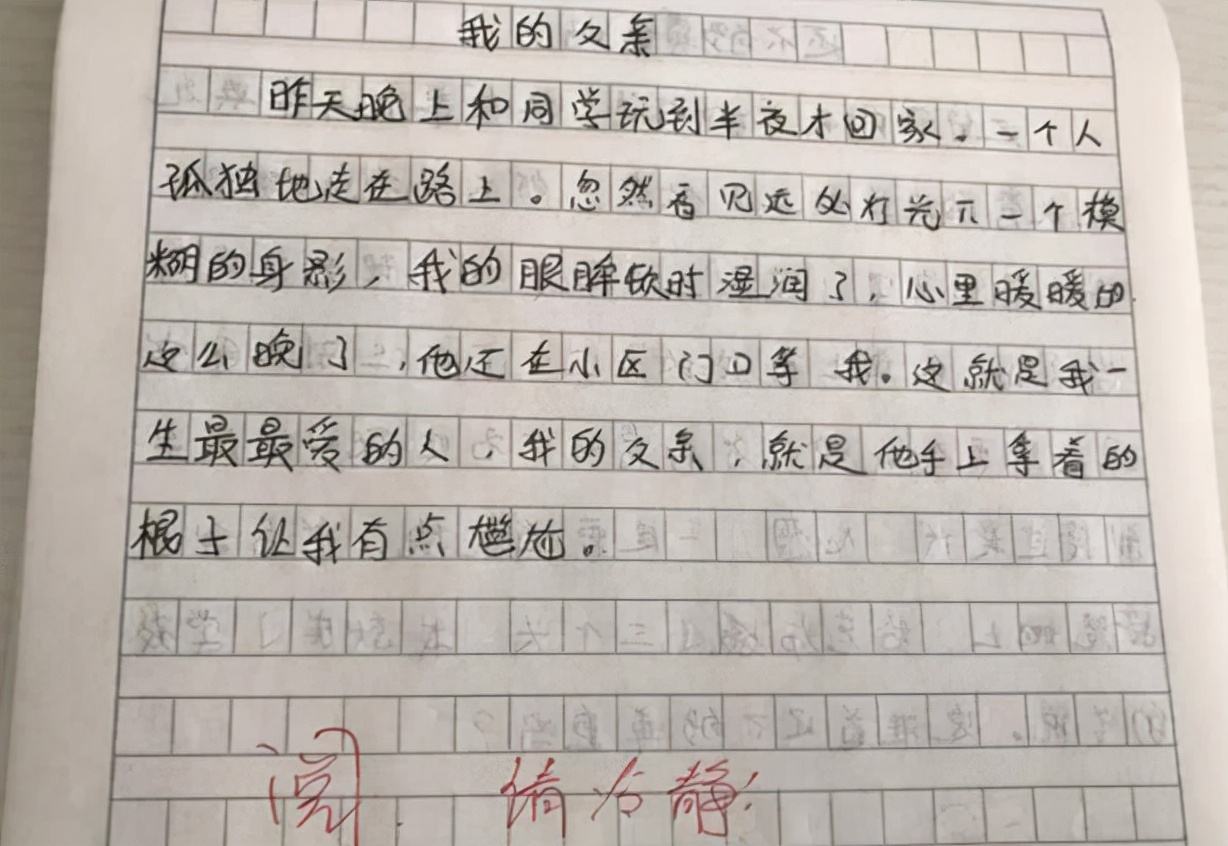 我的父亲
昨天晚上和同学玩到半夜才回家。一个人
孤独地走在路上。忽然看见远处灯光下一个模
糊的身影，我的眼眸顿时湿润了，心里暖暖的.
这么晚了，他还在小区门口等我。这就是我一
生最最爱的人，我的父亲，就是他手上拿着的
棍子让我有点尴尬。
阅. 请冷静!